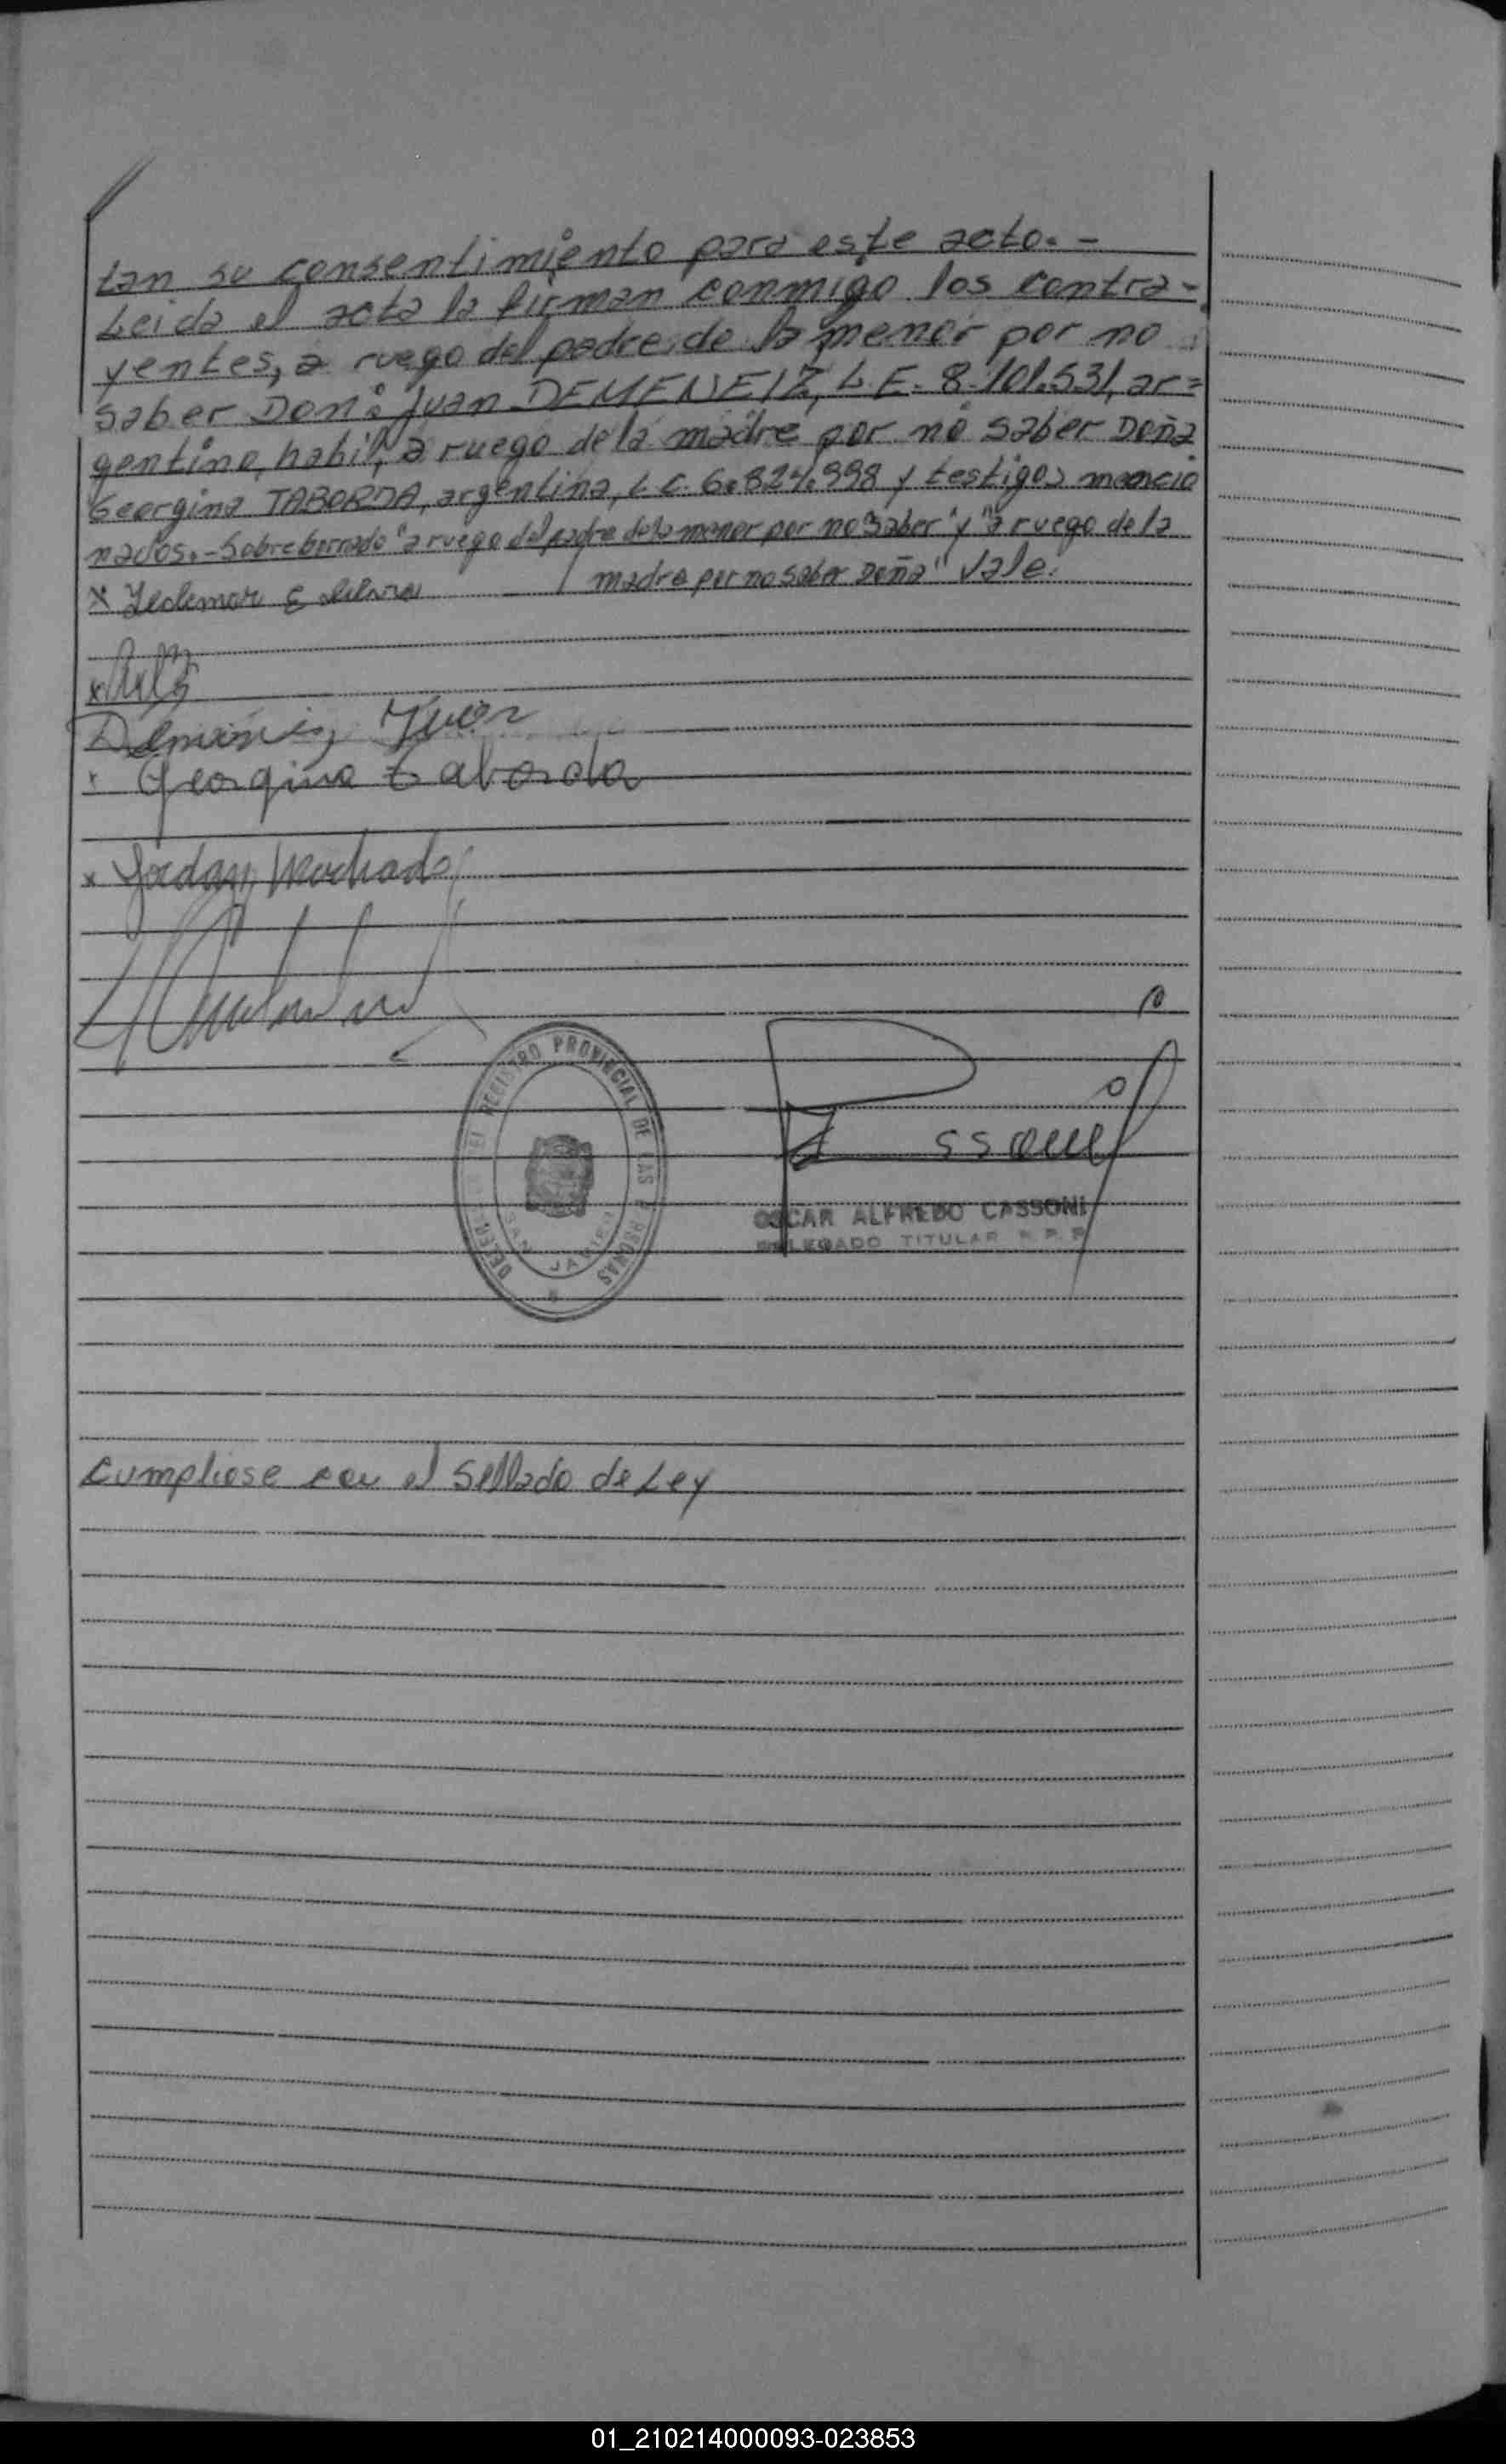 tan su consentimiento para este acto.-
Leida el acta la firman conmigo los contra-
yentes, a ruego del padre de la menor por no
saber Don: Juan DEMENEIZ, L.E. 8.101.531, ar=
gentino, habil, a ruego de la madre por no saber Doña
Georgina TABORDA, argentina, L.C. 6.824.998 y testigos mencio
nados.- Sobreborrado "a ruego del padre de la menor por no saber" y "a ruego de la
madre por no saber Doña" Vale.
x
x
Juan
Georgina Taborda
x Machado
DEL REGISTRO PROVINCIAL DE LAS PERSONAS
SAN JAVIER
OSCAR ALFREDO CASSONI
DELEGADO TITULAR R. P. P.
Cumpliose con el Sellado de Ley
01_210214000093-023853